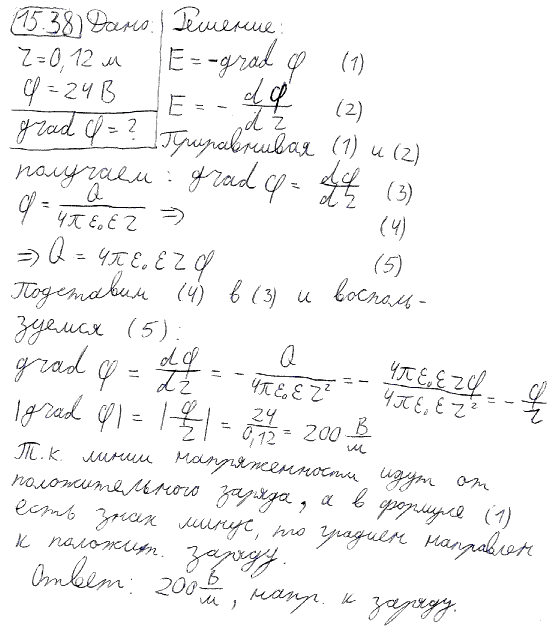 15.38 Дано: Решение:
r = 0,12 м E = -grad φ (1)
φ = 24 В E = - dφ/dr (2)
grad φ = ? Приравнивая (1) и (2)
получаем: grad φ = dφ/dr (3)
φ = Q/4πε₀εr ⇒ (4)
⇒ Q = 4πε₀εrφ (5)
Подставим (4) в (3) и восполь-
зуемся (5):
grad φ = dφ/dr = - Q/4πε₀εr² = - 4πε₀εrφ/4πε₀εr² = - φ/r
|grad φ| = |φ/r| = 24/0,12 = 200 В/м
Т.к. линии напряженности идут от
положительного заряда, а в формуле (1)
есть знак минус, то градиен направлен
к положит. заряду.
Ответ: 200 В/м, напр. к заряду.